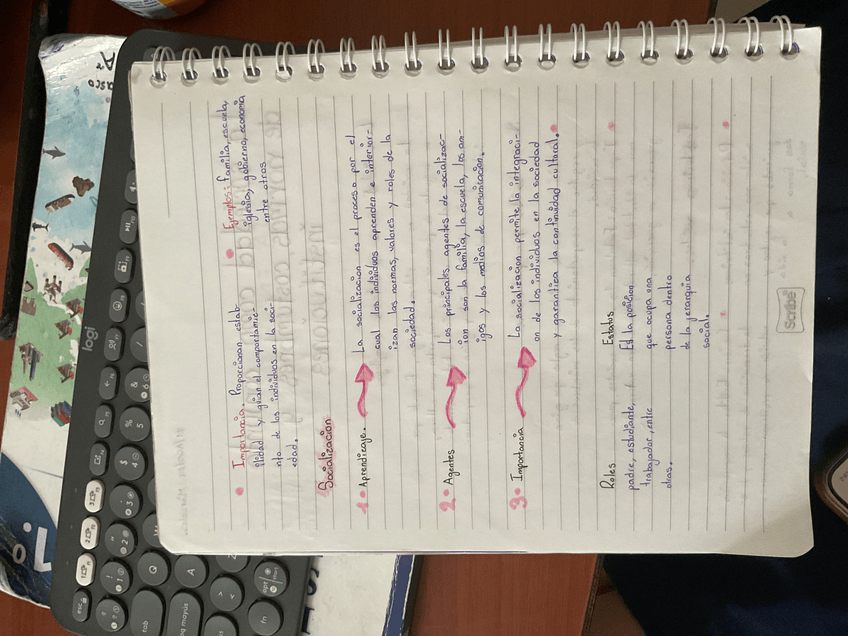 • Importancia. Proporcionan estab-
ilidad y guían el comportamie-
nto de los individuos en la soci-
edad.
• Ejemplos: familia, escuela,
iglesia, gobierno, economía
entre otros
Socialización
1• Aprendizaje.
La socialización es el proceso por el
cual los individuos aprenden e interior-
izan las normas, valores y roles de la
sociedad.
2• Agentes
Los principales agentes de socializac-
ión son la familia, la escuela, los am-
igos y los medios de comunicación.
3• Importancia
La socialización permite la integraci-
ón de los individuos en la sociedad
y garantiza la continuidad cultural.
Roles
padre, estudiante,
trabajador, entre
otras.
Estatus
Es la posición
que ocupa una
persona dentro
de la jerarquía
social.
Scribe
logi
esc
tab
Q
A
fn